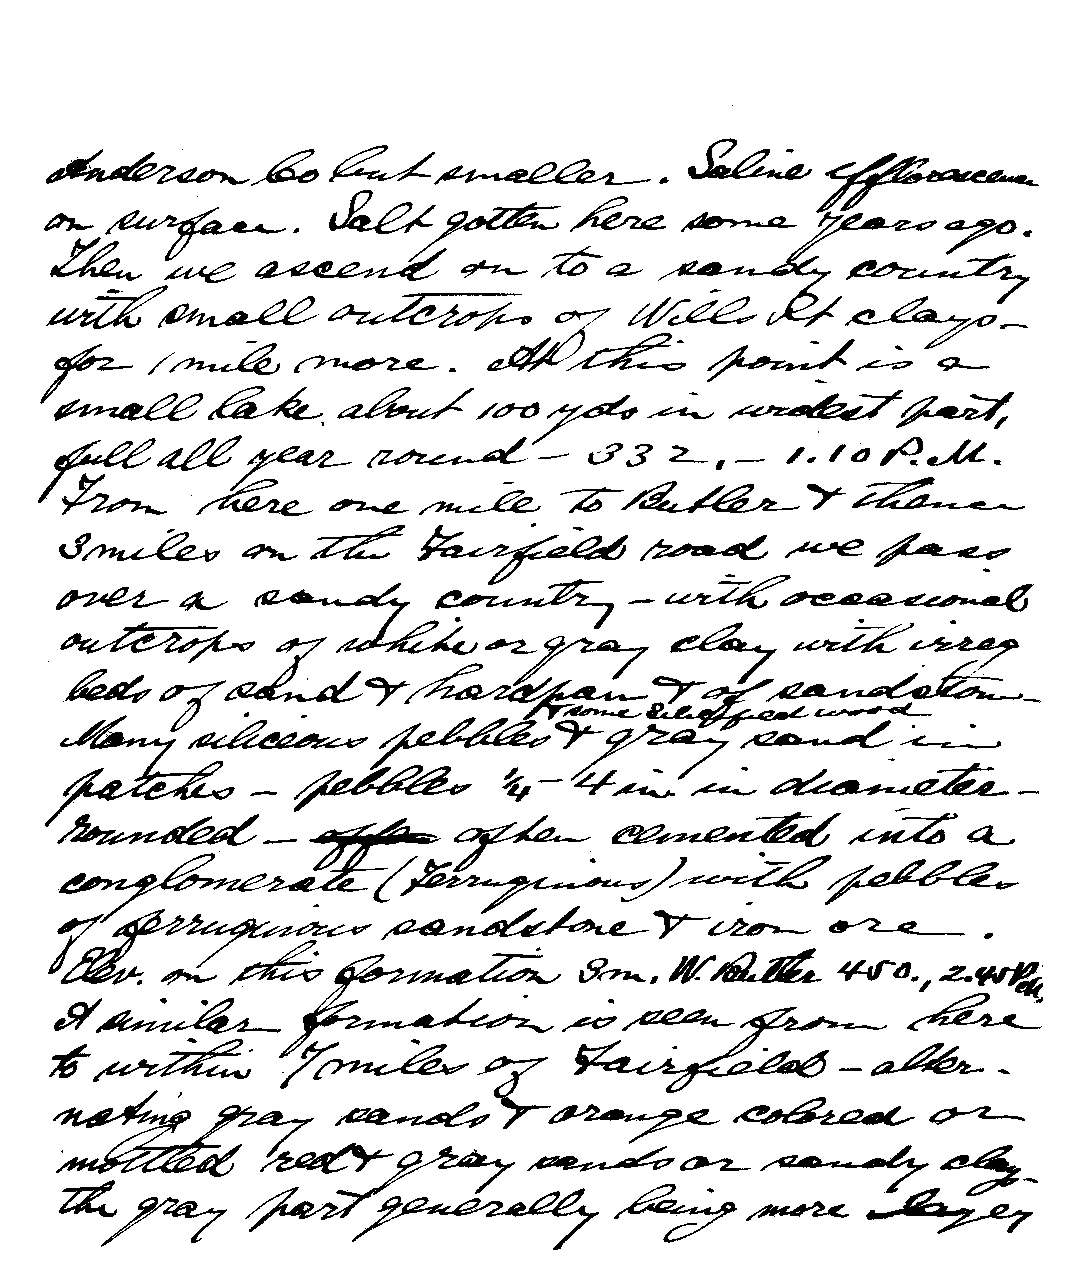 Anderson Co but smaller. Saline efflorescence
on surface. Salt gotten here some years ago.
Then we ascend on to a sandy country
with small outcrops of Wills Pt clays-
for 1 mile more. At this point is a
small lake about 100 yds in widest part,
full all year round - 332. - 1.10 P.M.
From here one mile to Butler & thence
3 miles on the Fairfield road we pass
over a sandy country - with occasional
outcrops of white or gray clay with irreg
beds of sand & hardpan & of sandstone-
& some silicified wood
Many siliceous pebbles & gray sand in
patches - pebbles ¼ - 4 in. in diameter-
rounded - often cemented into a
conglomerate (ferruginous) with pebbles
of ferruginous sandstone & iron ore.
Elev. on this formation 3 m. W. Butler 450., 2.45 P.M.
A similar formation is seen from here
to within 7 miles of Fairfield - alter-
nating gray sands & orange colored or
mottled red & gray sands or sandy clay-
the gray part generally being more